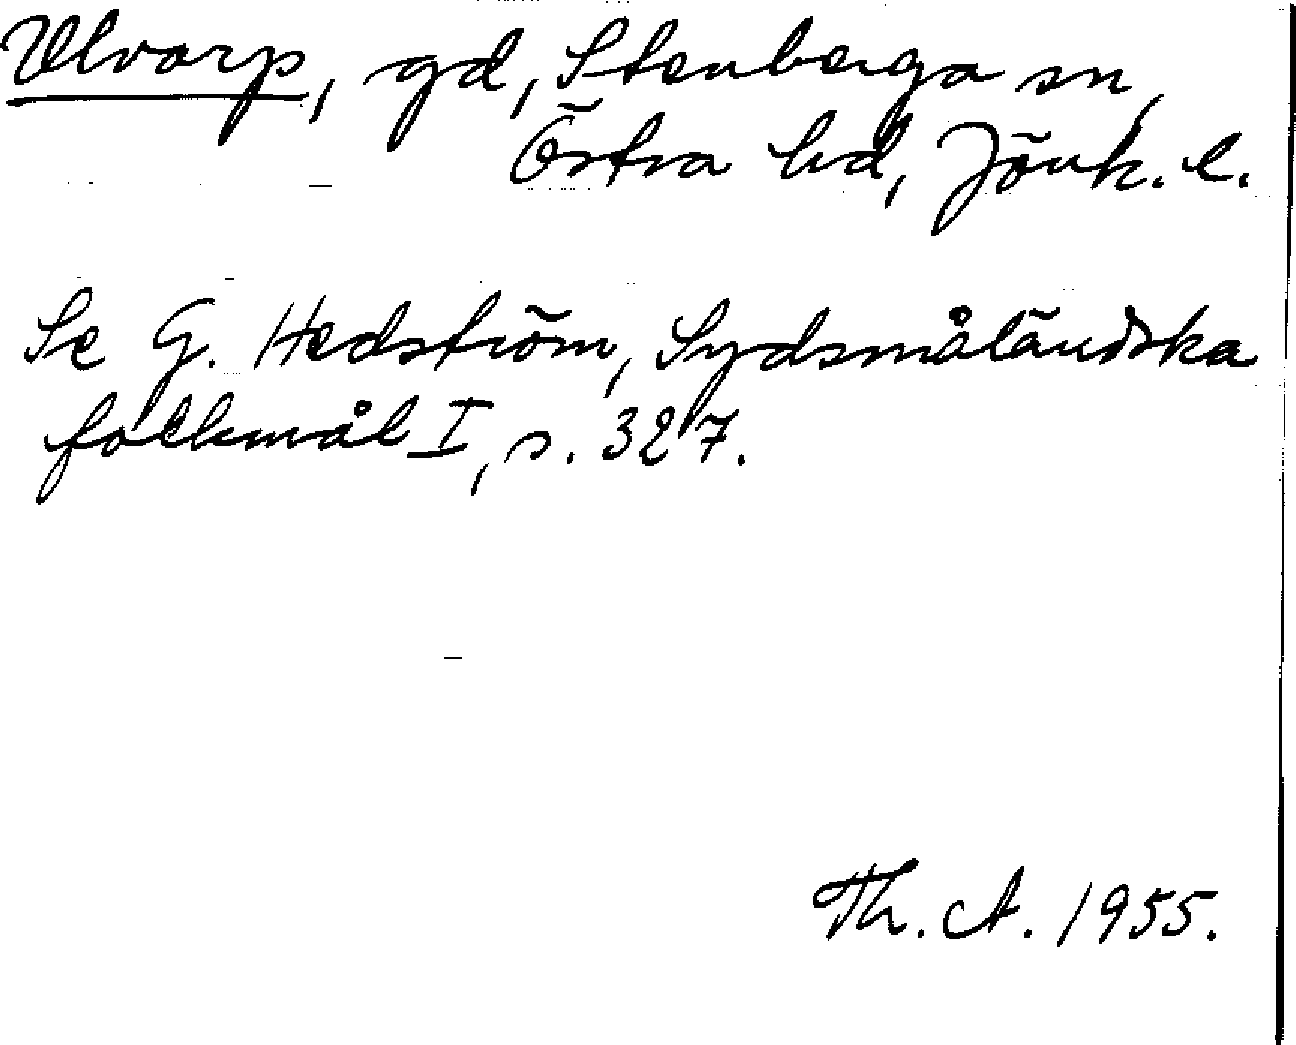 Ulvarp, gd, Stenberga sn,
Östra hd, Jönk. l.
Se G. Hedström, Sydsmåländska
folkmål I, s. 327.
Th. A. 1955.